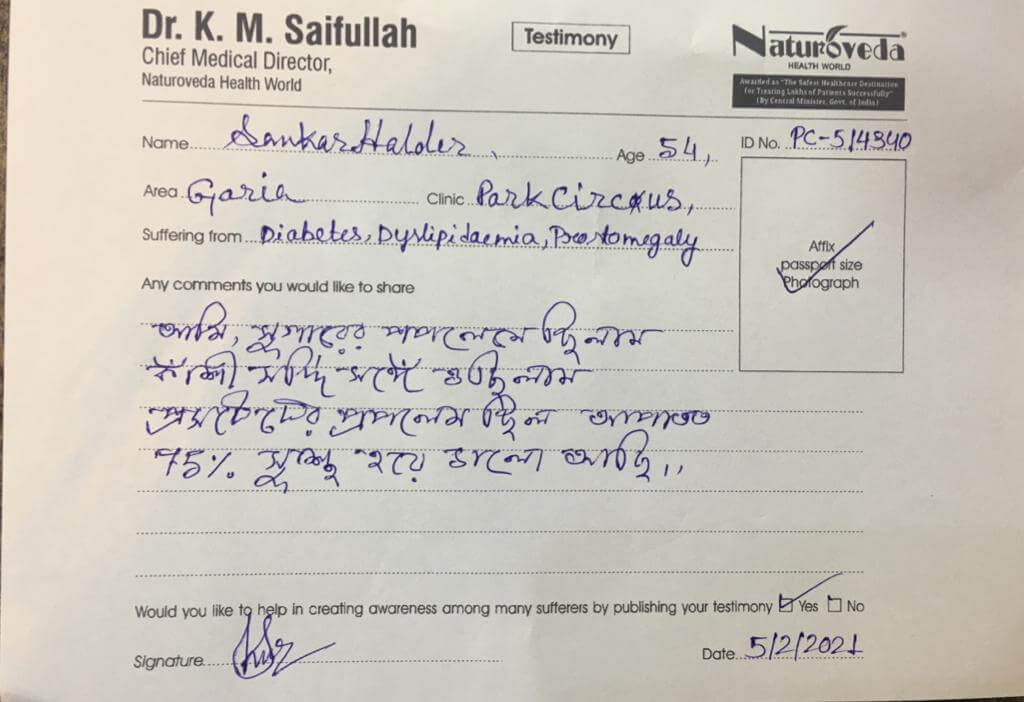 Dr. K. M. Saifullah
Chief Medical Director,
Naturoveda Health World
Testimony
Naturoveda®
HEALTH WORLD
Awarded as "The Safest Healthcare Destination
for Treating Lakhs of Patients Successfully"
(By Central Minister, Govt. of India)
Name Sankar Halder, Age 54, ID No. PC-514340
Area Garia Clinic Park Circus,
Suffering from Diabetes, Dyslipidaemia, Prostomegaly
Affix
passport size
Photograph
Any comments you would like to share
আমি, সুগারের প্রপলেমে ছিলাম
কাশী সর্দি
প্রপলেম ছিল আপাতত
75% সুস্থ হয়ে ভালো আছি,,
Would you like to help in creating awareness among many sufferers by publishing your testimony Yes No
Signature Date 5/2/2021